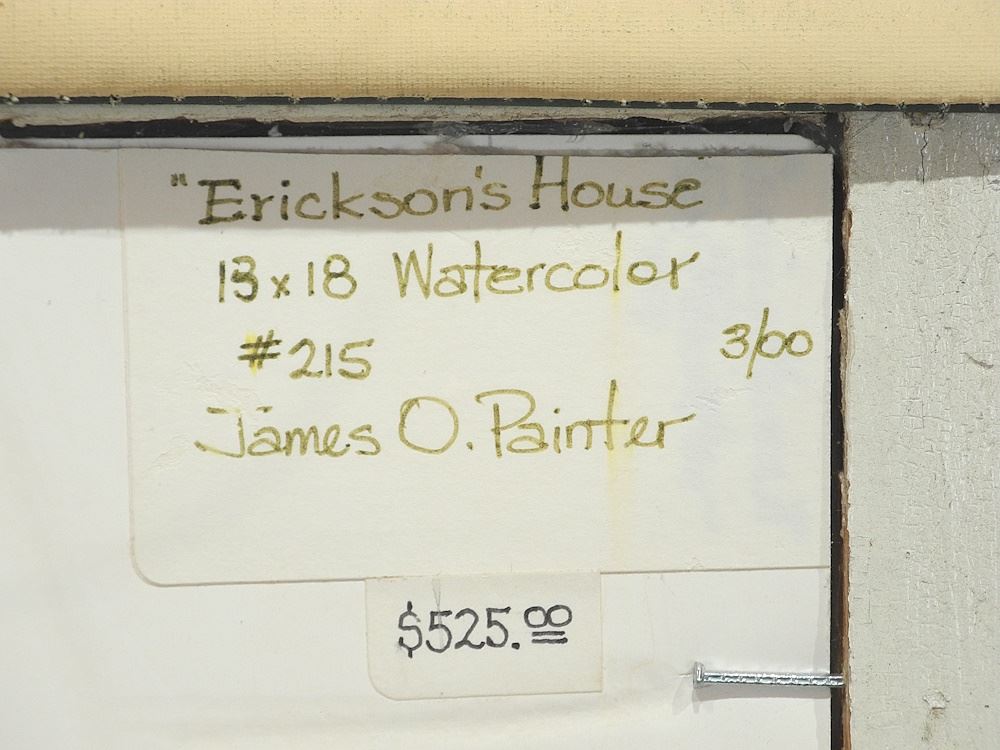 "Erickson's House"
13x18 Watercolor
#215 3/00
James O. Painter
$525.00